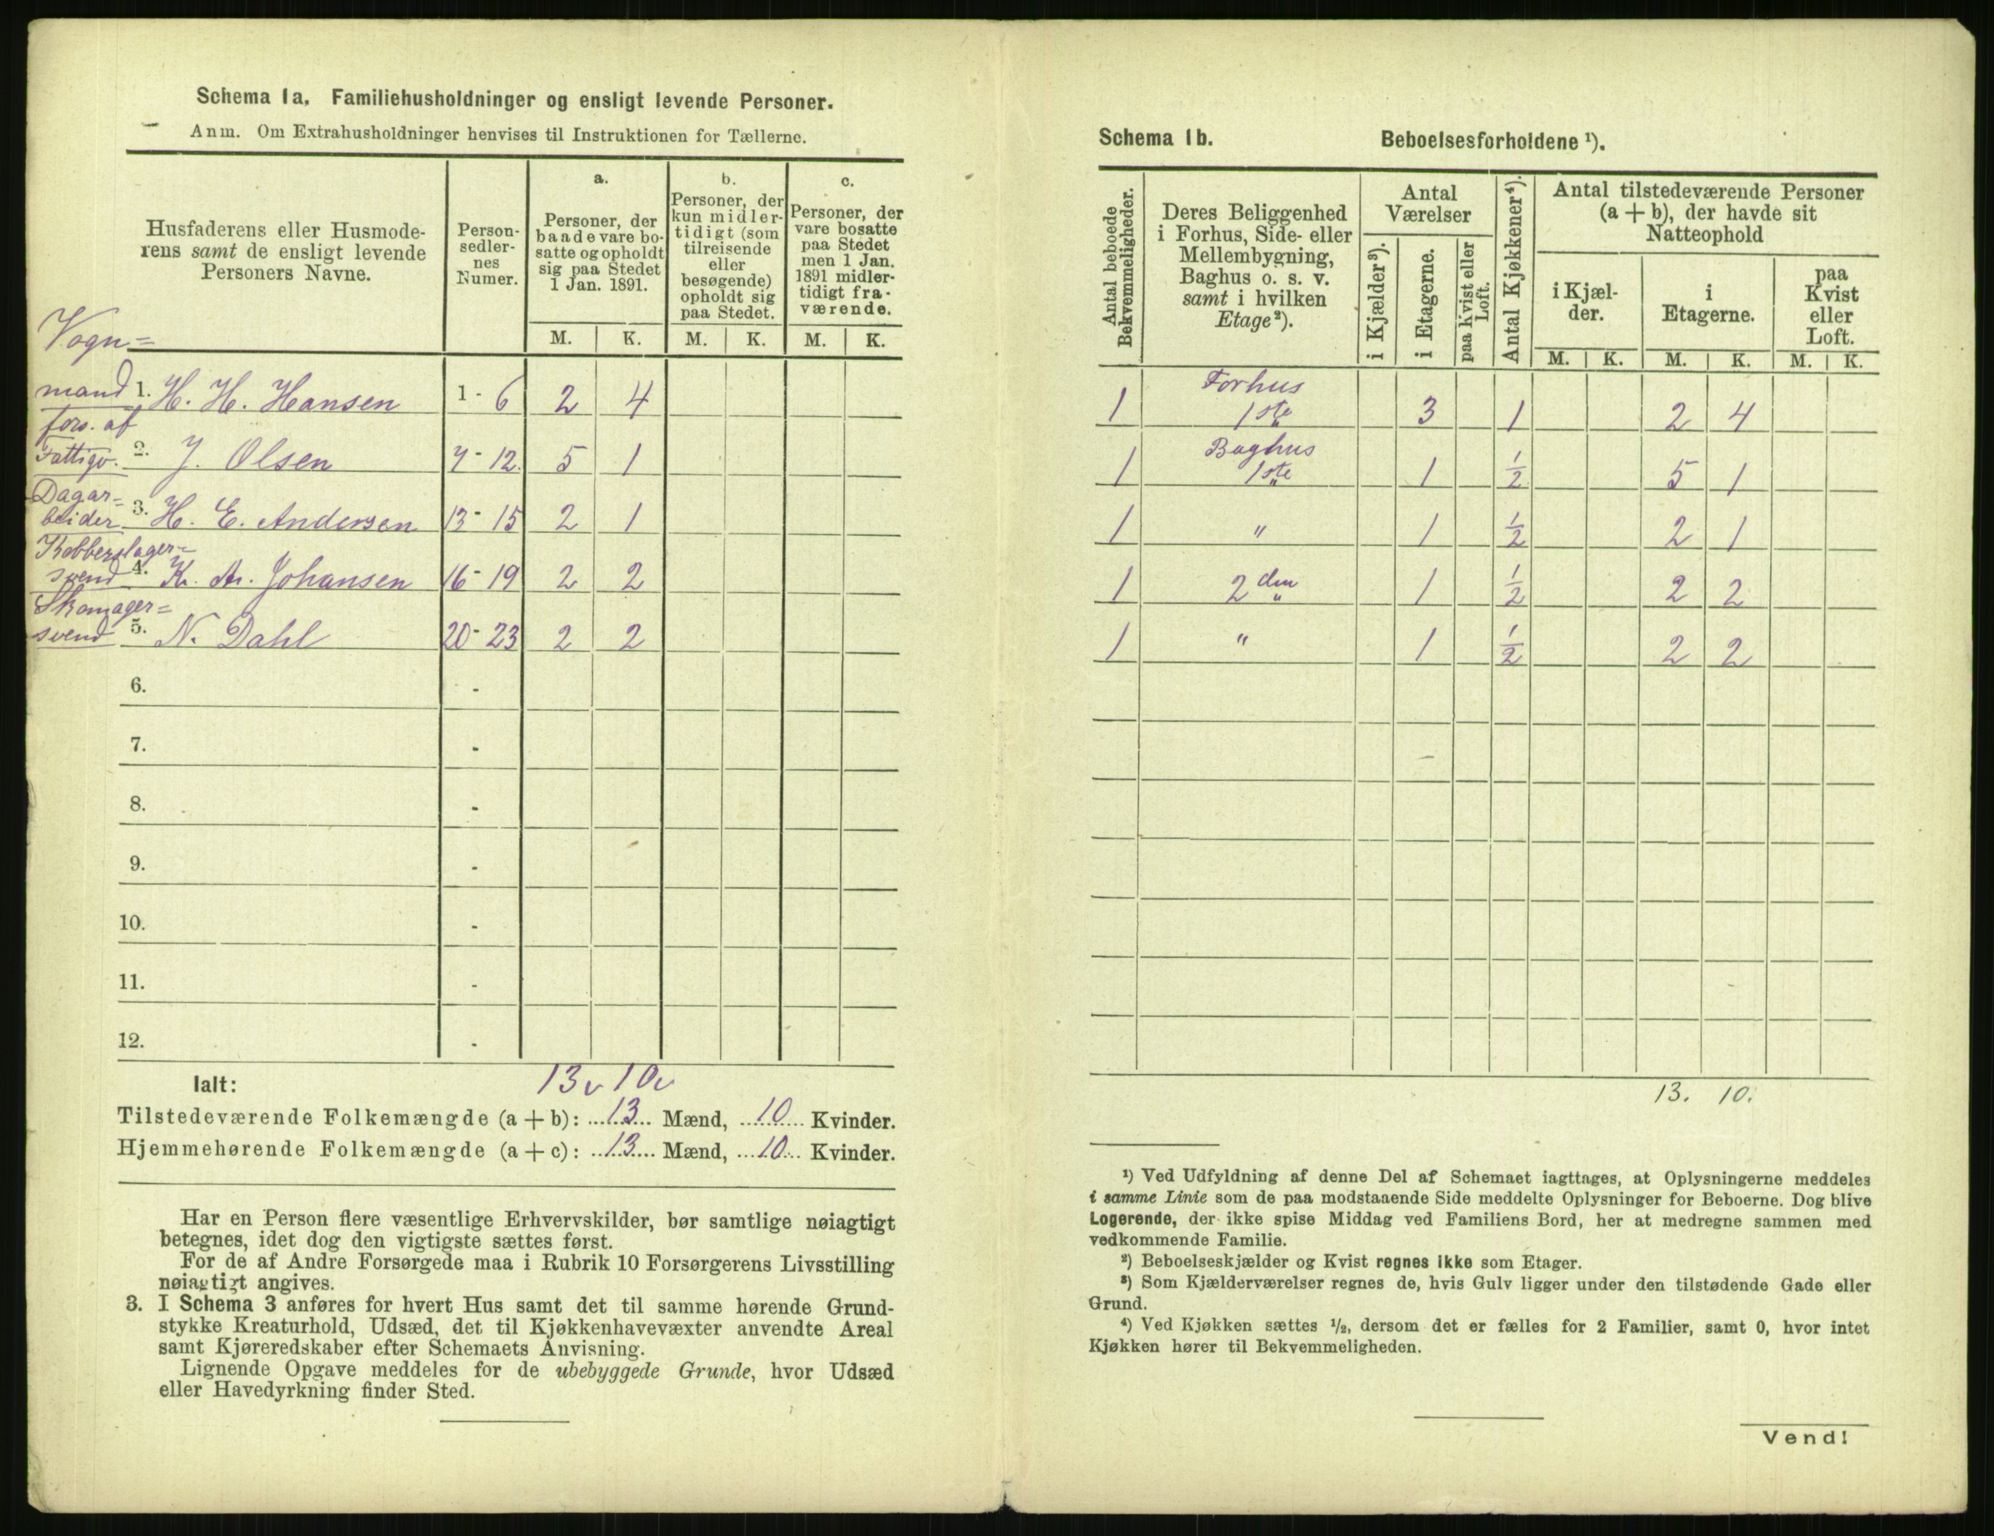 Schema 1a. Familiehusholdninger og ensligt levende Personer.
Anm. Om Extrahusholdninger henvises til Instruktionen for Tællerne.
Husfaderens eller Husmode-
rens samt de ensligt levende
Personers Navne.
Person-
sedler-
nes
Numer.
a.
Personer, der
baade vare bo-
satte og opholdt
sig paa Stedet
1 Jan. 1891.
b.
Personer, der
kun midler-
tidigt (som
tilreisende
eller
besøgende)
opholdt sig
paa Stedet.
c.
Personer, der
vare bosatte
paa Stedet
men 1 Jan.
1891 midler-
tidigt fra-
værende.
M. K. M. K. M. K.
Vogn=
mand 1. H. H. Hansen 1 - 6 2 4
fors. af
Fattigv. 2. J. Olsen 7 - 12. 5 1
Dagar=
beider 3. H. E. Andersen 13 - 15 2 1
Kobberslager=
svend 4. K. A. Johansen 16 - 19 2 2
Skomager=
svend 5. N. Dahl 20 - 23 2 2
6. -
7. -
8. -
9. -
10. -
11. -
12. -
Ialt: 13 v 10 v
Tilstedeværende Folkemængde (a + b): 13 Mænd, 10 Kvinder.
Hjemmehørende Folkemængde (a + c): 13 Mænd, 10 Kvinder.
Har en Person flere væsentlige Erhvervskilder, bør samtlige nøiagtigt
betegnes, idet dog den vigtigste sættes først.
For de af Andre Forsørgede maa i Rubrik 10 Forsørgerens Livsstilling
nøiagtigt angives.
3. I Schema 3 anføres for hvert Hus samt det til samme hørende Grund-
stykke Kreaturhold, Udsæd, det til Kjøkkenhavevæxter anvendte Areal
samt Kjøreredskaber efter Schemaets Anvisning.
Lignende Opgave meddeles for de ubebyggede Grunde, hvor Udsæd
eller Havedyrkning finder Sted.
Schema 1b. Beboelsesforholdene ¹).
Antal beboede
Bekvemmeligheder.
Deres Beliggenhed
i Forhus, Side- eller
Mellembygning,
Baghus o. s. v.
samt i hvilken
Etage²).
Antal
Værelser
i Kjælder³).
i Etagerne.
paa Kvist eller
Loft.
Antal Kjøkkener⁴).
Antal tilstedeværende Personer
(a + b), der havde sit
Natteophold
i Kjæl-
der.
i
Etagerne.
paa
Kvist
eller
Loft.
M. K. M. K. M. K.
Forhus
1 1ste " 3 1 2 4
Baghus
1 1ste " 1 ½ 5 1
1 " 1 ½ 2 1
1 2den " 1 ½ 2 2
1 " 1 ½ 2 2
13. 10.
¹) Ved Udfyldning af denne Del af Schemaet iagttages, at Oplysningerne meddeles
i samme Linie som de paa modstaaende Side meddelte Oplysninger for Beboerne. Dog blive
Logerende, der ikke spise Middag ved Familiens Bord, her at medregne sammen med
vedkommende Familie.
²) Beboelseskjælder og Kvist regnes ikke som Etager.
³) Som Kjælderværelser regnes de, hvis Gulv ligger under den tilstødende Gade eller
Grund.
⁴) Ved Kjøkken sættes ½, dersom det er fælles for 2 Familier, samt 0, hvor intet
Kjøkken hører til Bekvemmeligheden.
Vend!